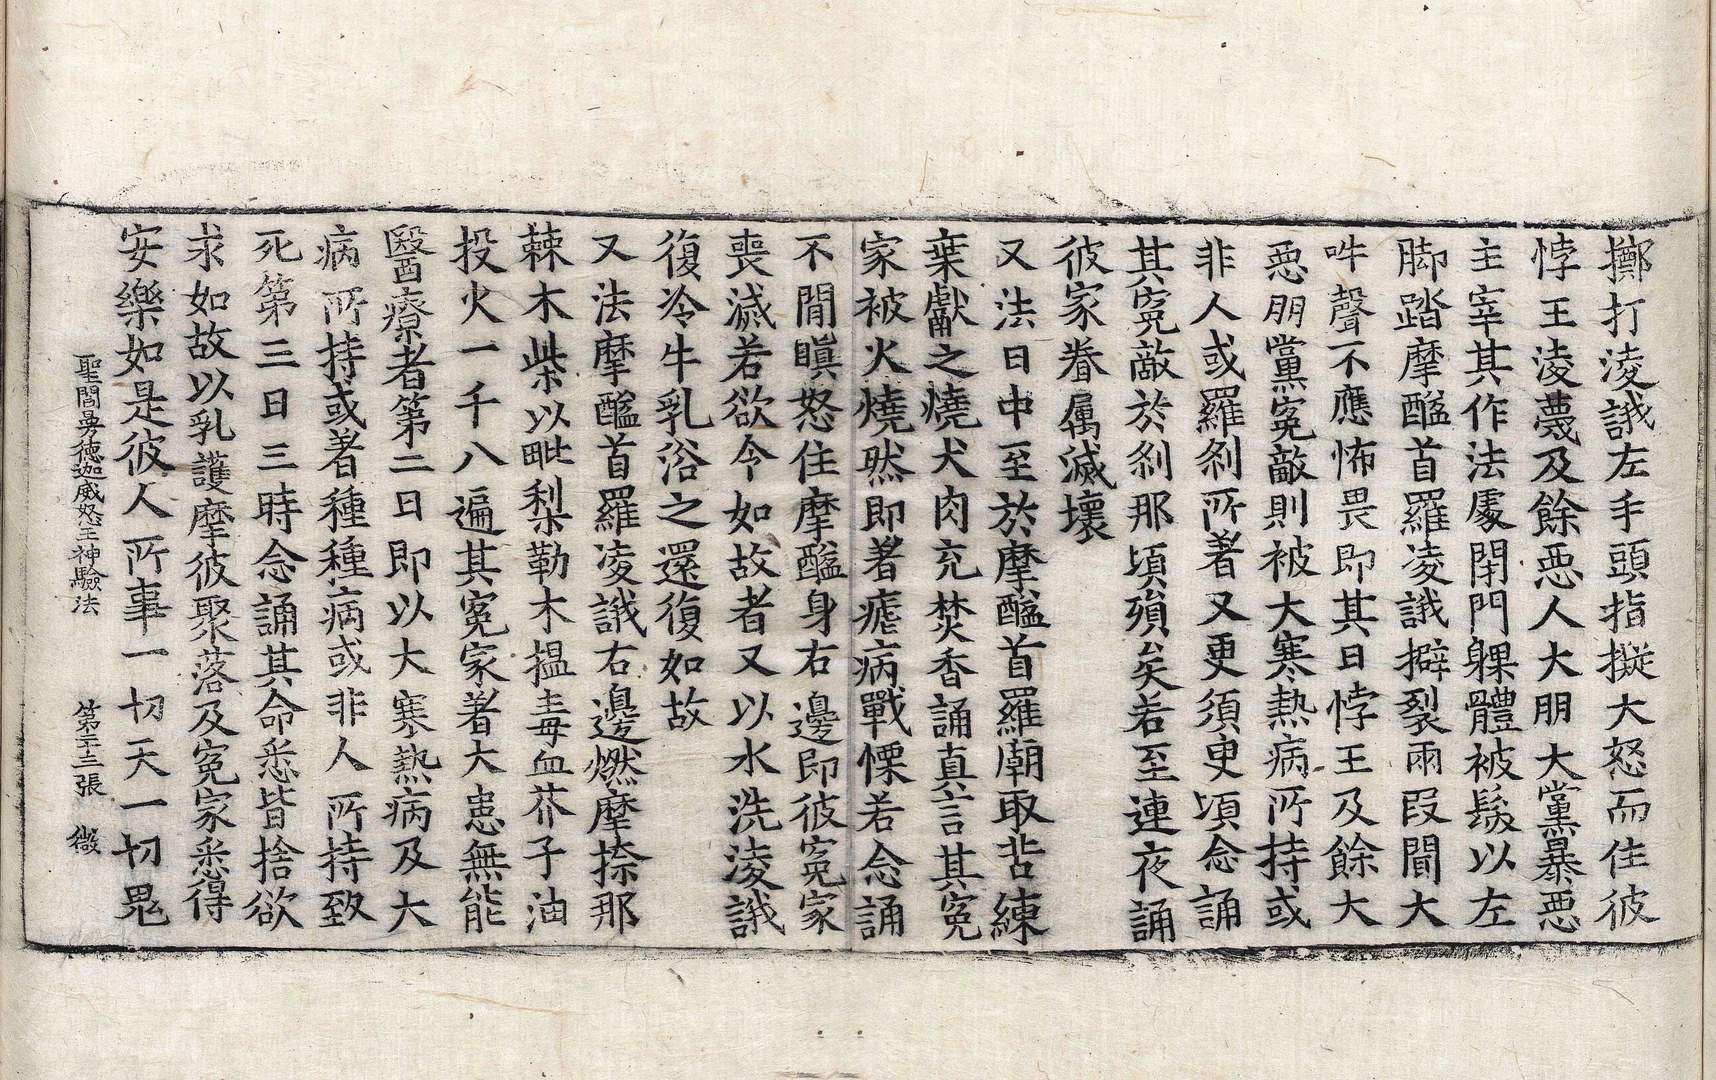 擲打淩誐左手頭指擬大怒而住彼
悖王淩蔑及餘惡人大朋大黨暴惡
主宰其作法處閉門躶體被髮以左
脚踏摩醯首羅凌誐擗裂兩段聞大
吽聲不應怖畏即其日悖王及餘大
惡朋黨寃敵則被大寒熱病所持或
非人或羅剎所著又更須臾頃念誦
其寃敵於剎那頃殞矣若至連夜誦
彼家眷属滅壞
又法日中至於摩醯首羅廟取苦練
葉獻之燒犬肉充焚香誦真言其寃
家被火燒然即著瘧病戰慄若念誦
不間瞋怒住摩醯身右邊即彼寃家
喪滅若欲令如故者又以水洗淩誐
復冷牛乳浴之還復如故
又法摩醯首羅凌誐右邊燃摩捺那
棘木柴以毗梨勒木搵毒血芥子油
投火一千八遍其寃家著大患無能
毉療者第二日即以大寒熱病及大
病所持或著種種病或非人所持致
死第三日三時念誦其命悉皆捨欲
求如故以乳護摩彼聚落及寃家悉得
安樂如是彼人所事一切天一切鬼
聖閻曼德迦威怒王神驗法　第二十三張